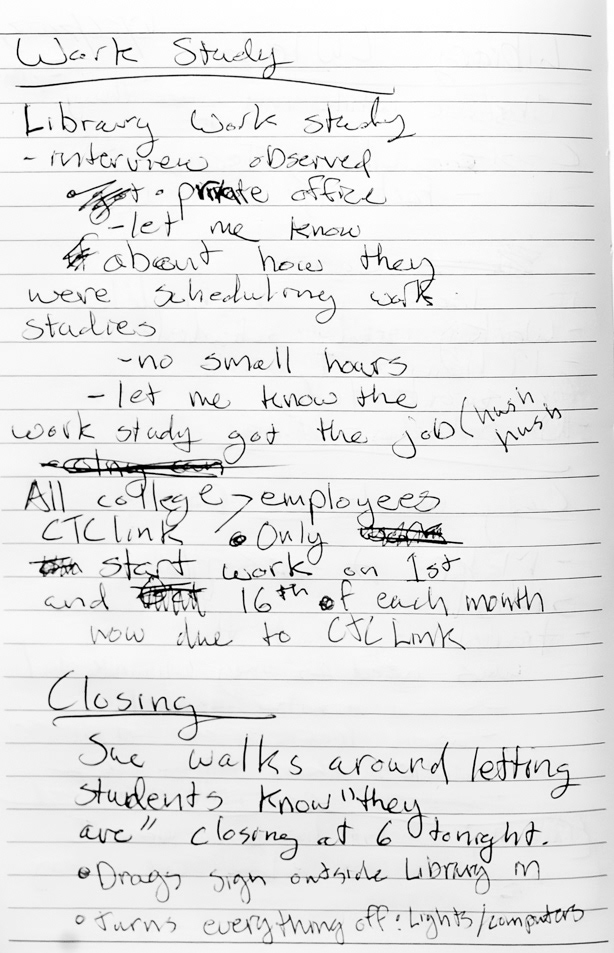 Work Study
Library Work study
- interview observed
• private office
- let me know
about how they
were scheduling work
studies
- no small hours
- let me know the
work study got the job (hush
hush
All college > employees
CTC link • Only
start work on 1st
and 16th of each month
now due to CTC Link
Closing
Sue walks around letting
students know "they
are" closing at 6 tonight.
• Drags sign outside Library in
• turns everything off: Lights/computers